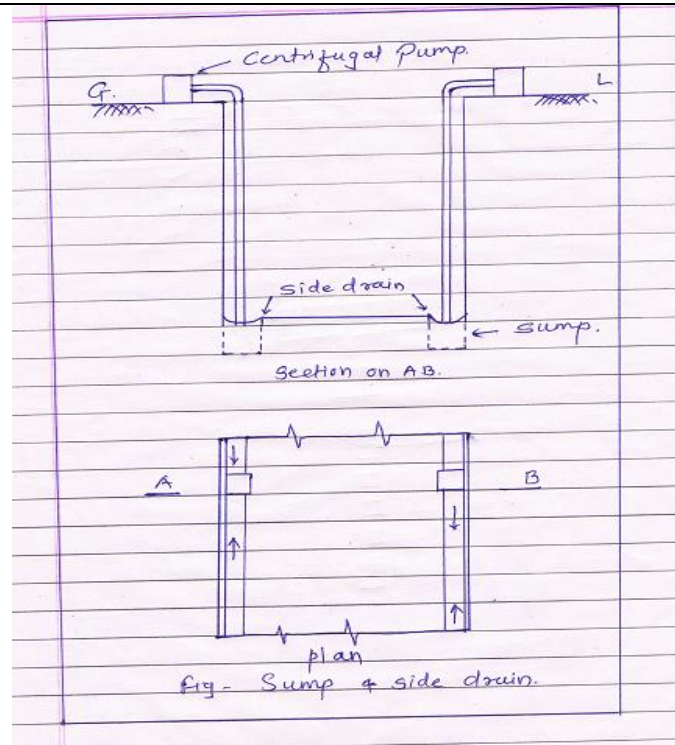 Centrifugal Pump.
G. L
side drain
Sump.
Section on AB.
A B
plan
Fig - Sump & side drain.